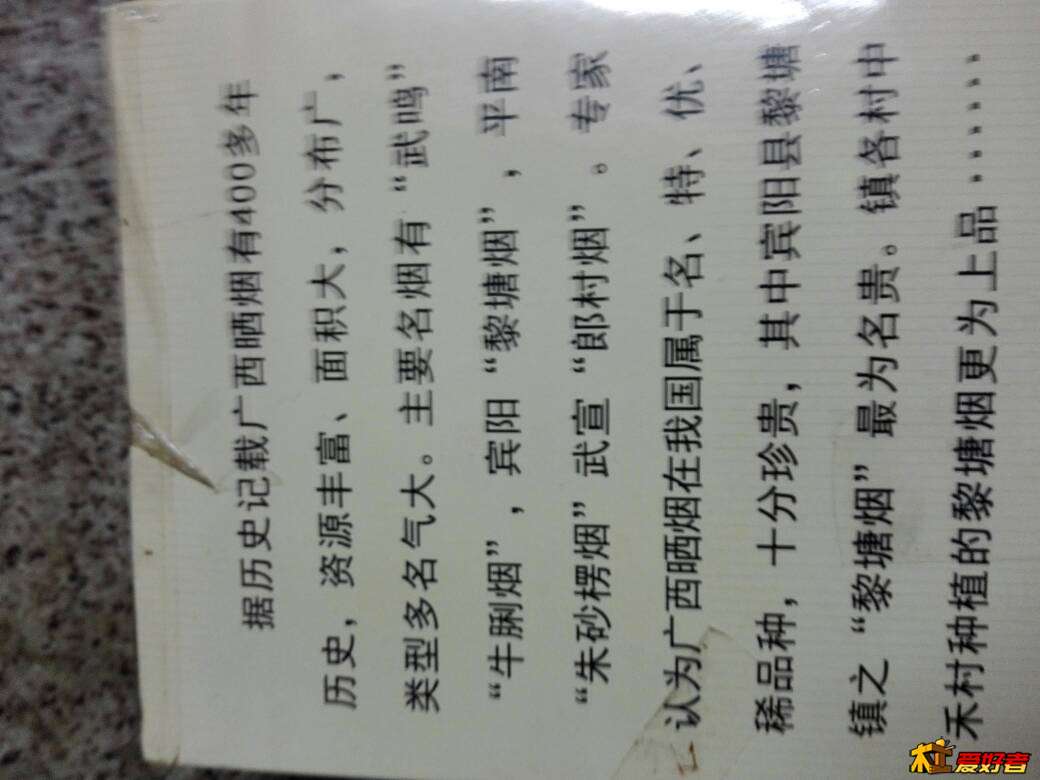 据历史记载广西晒烟有400多年
历史，资源丰富、面积大，分布广，
类型多名气大。主要名烟有“武鸣”
“牛脷烟”，宾阳“黎塘烟”，平南
“朱砂楞烟”武宣“郎村烟”。专家
认为广西晒烟在我国属于名、特、优、
稀品种，十分珍贵，其中宾阳县黎塘
镇之“黎塘烟”最为名贵。镇各村中
禾村种植的黎塘烟更为上品……
杠爱好者